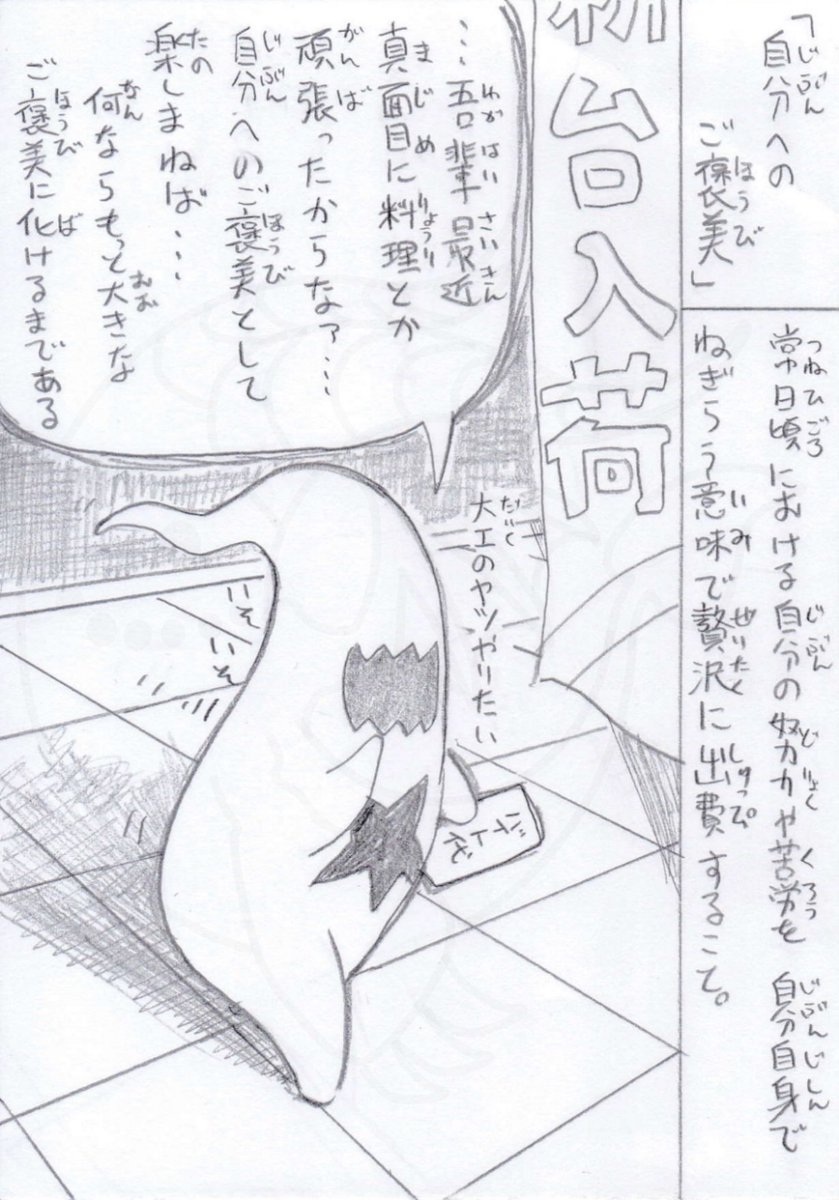 「自分への
ご褒美」
常日頃における自分の努力や苦労を 自分自身で
ねぎらう意味で贅沢に出費すること。
新台入荷
…吾輩最近
真面目に料理とか
頑張ったからなァ…
自分へのご褒美として
楽しまねば…
何ならもっと大きな
ご褒美に化けるまである
大工のヤツやりたい
いそ
いそ